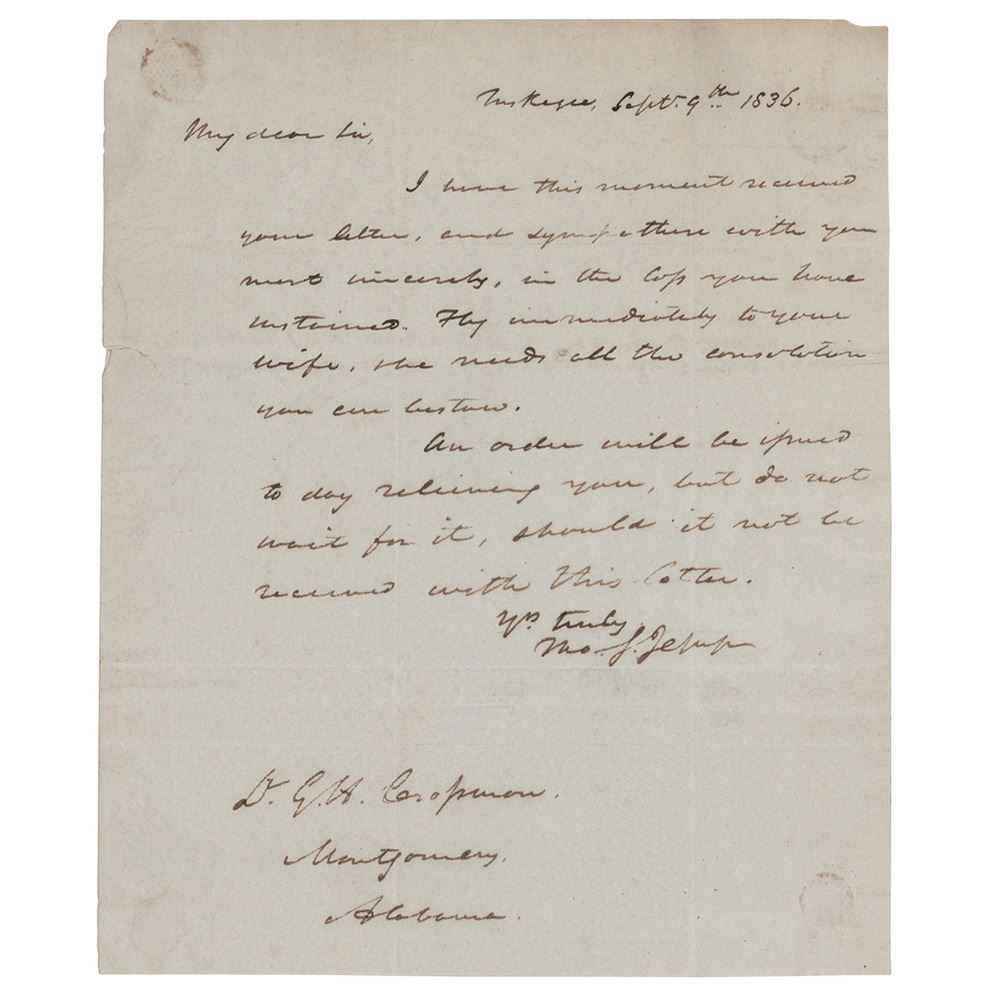 Tuskegee, Sept. 9th 1836.
My dear Sir,
I have this moment received
your letter, and sympathise with you
most sincerely, in the loss you have
sustained. Fly immediately to your
wife, she needs all the consolation
you can bestow.
An order will be issued
to day relieving you, but do not
wait for it, should it not be
received with this letter.
Yrs truly
Tho. S. Jesup
Dr. G. H. Crossman.
Montgomery,
Alabama.